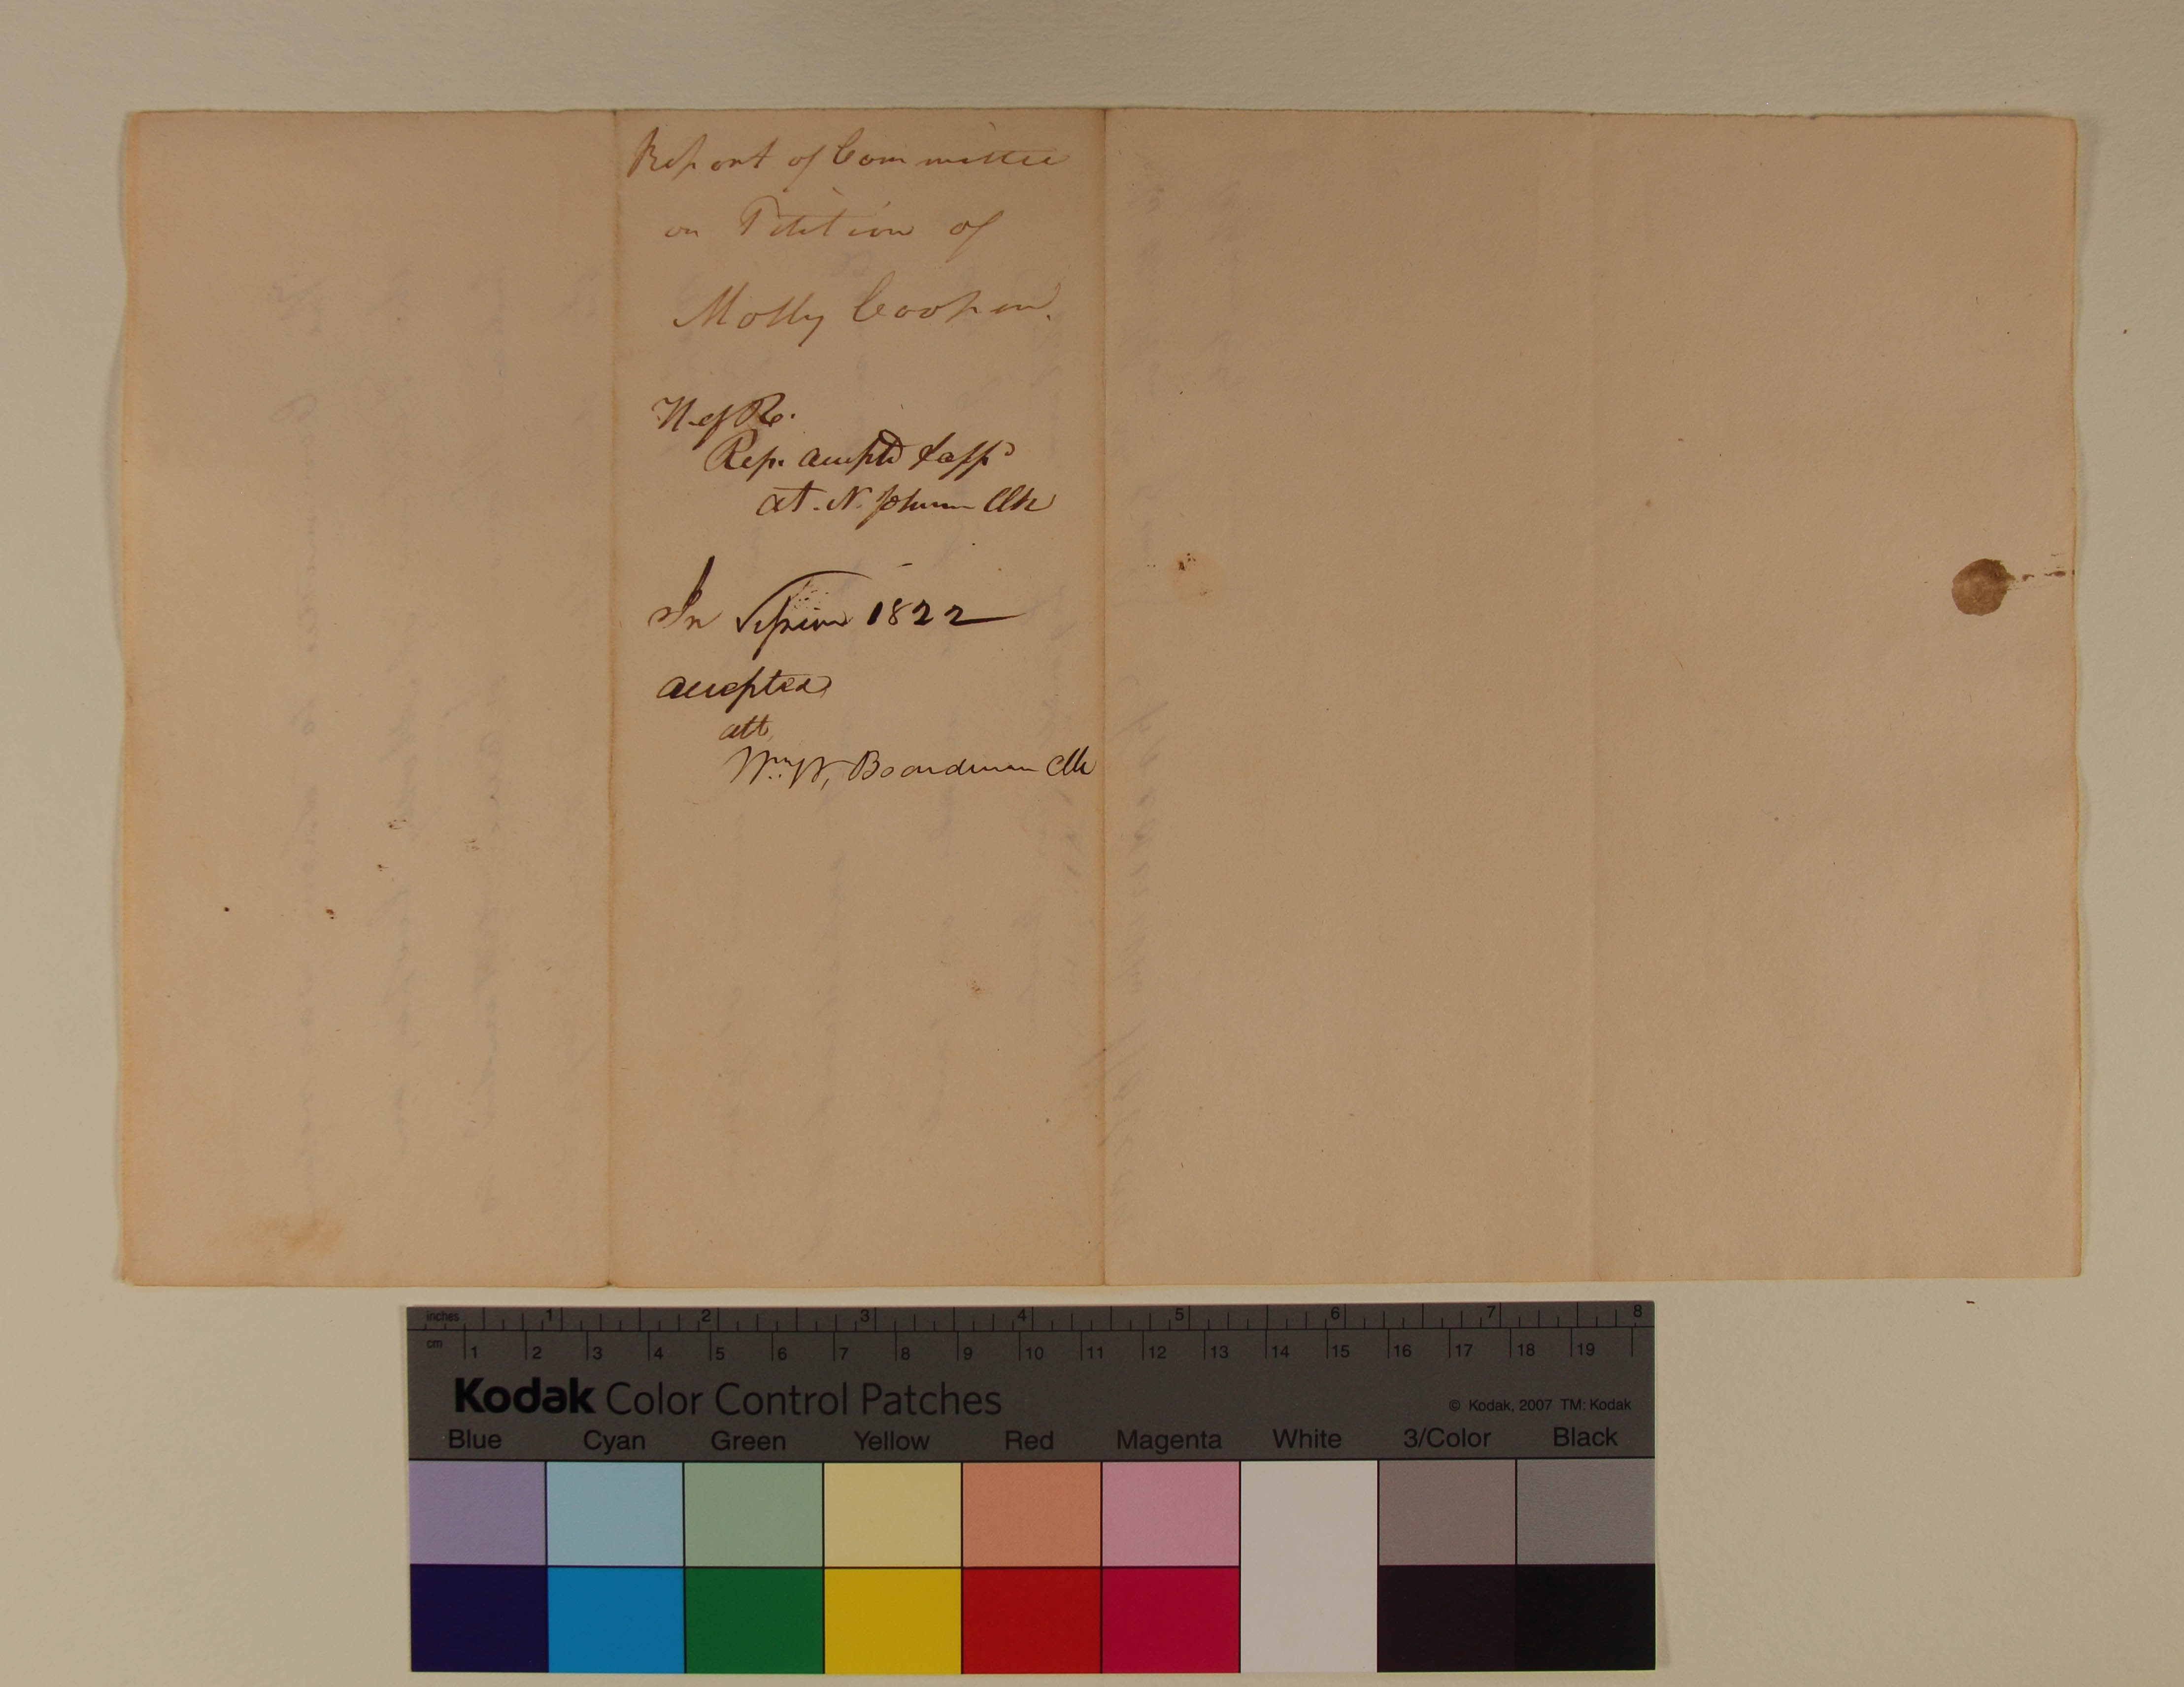 Report of Committee
on Petition of
Molly Cooper.
H. of Re.
Rep. accepted & app'd
att. N. Johnson Clk
In Session 1822
accepted
att.
Wm. W. Boardman Clk
inches 1 2 3 4 5 6 7 8
cm 1 2 3 4 5 6 7 8 9 10 11 12 13 14 15 16 17 18 19
Kodak Color Control Patches
© Kodak, 2007 TM: Kodak
Blue Cyan Green Yellow Red Magenta White 3/Color Black